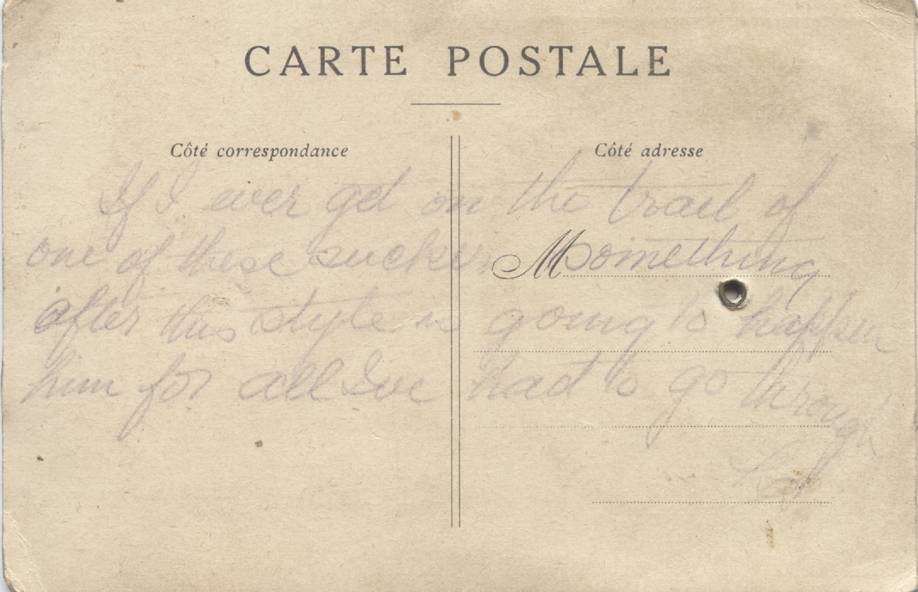 CARTE POSTALE
Côté correspondance
Côté adresse
If I ever get on the trail of
one of these sucker M something
after this style is going to happen
him for all Ive had to go through